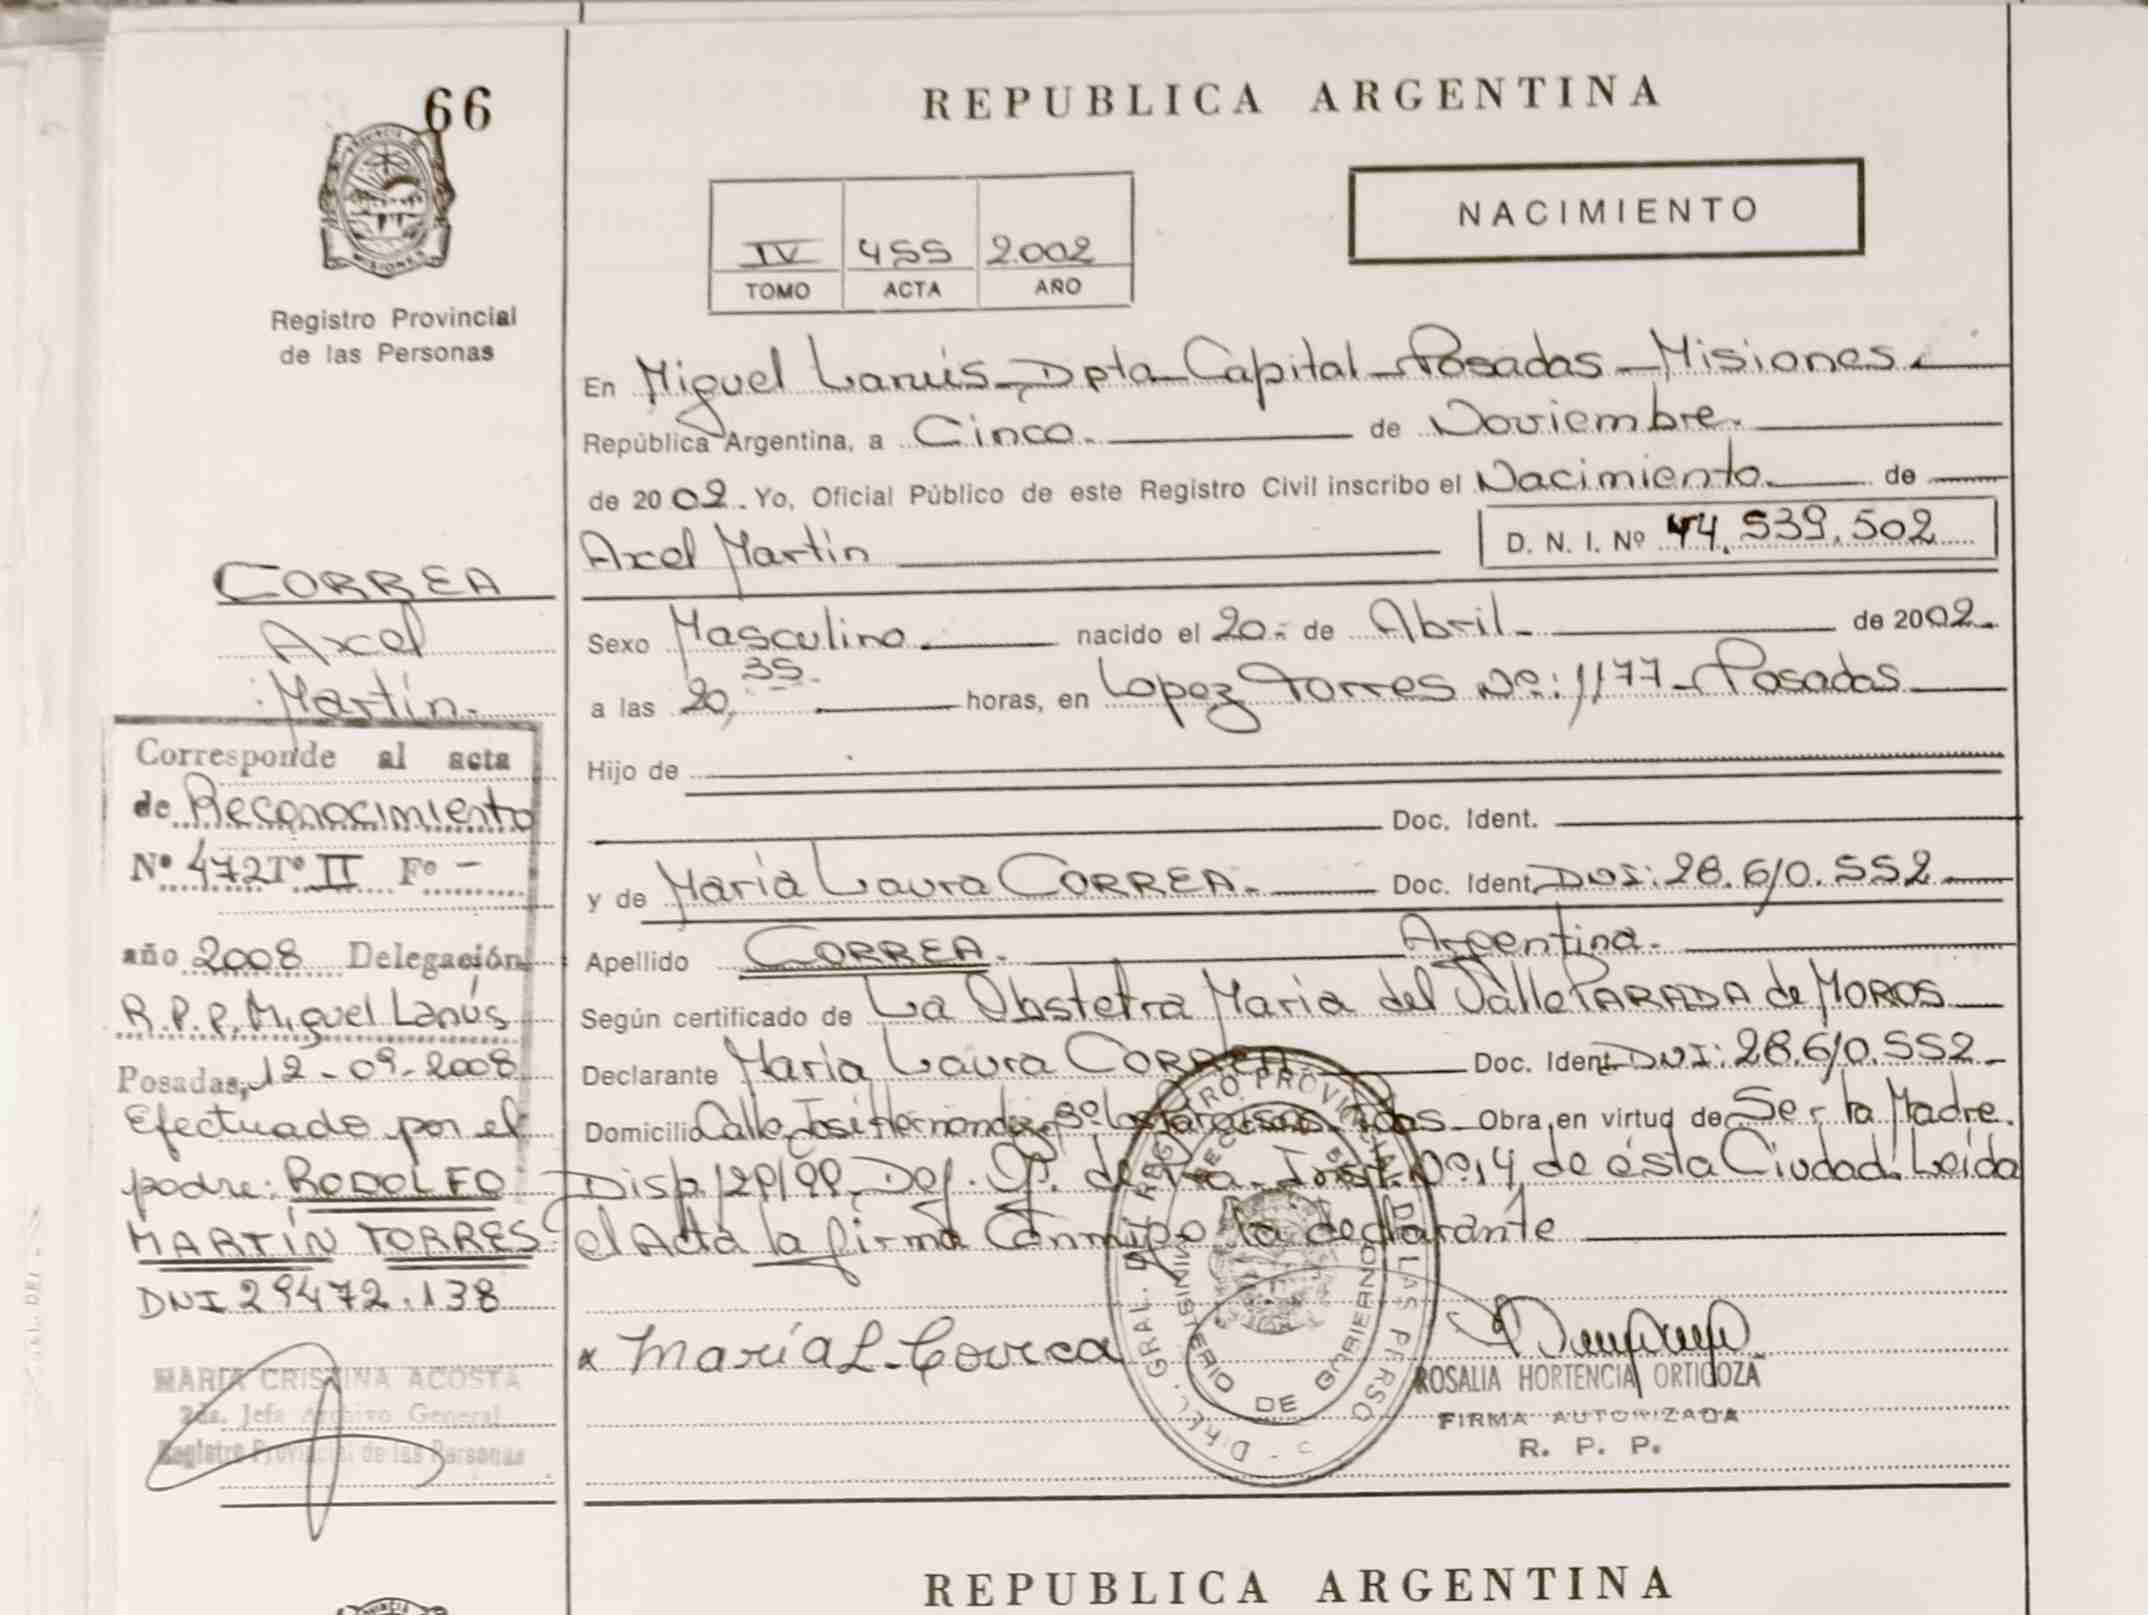 66
Registro Provincial
de las Personas
CORREA
Axel
Martín.
Corresponde al acta
de Reconocimiento
Nº 472 Tº II Fº -
año 2008 Delegación
R.P.P. Miguel Lanús
Posadas, 12-09-2008
Efectuado por el
padre: RODOLFO
MARTÍN TORRES
DNI 29472.138
MARIA CRISTINA ACOSTA
2da. Jefa Archivo General
Registro Provincial de las Personas
REPUBLICA ARGENTINA
NACIMIENTO
IV 455 2.002
TOMO ACTA AÑO
En Miguel Lanús - Dpto. Capital - Posadas - Misiones.
República Argentina, a Cinco. de Noviembre.
de 2002. Yo, Oficial Público de este Registro Civil inscribo el Nacimiento de
Axel Martín D. N. I. Nº 44.539.502
Sexo Masculino. nacido el 20.- de Abril. de 2002.
a las 20,35. horas, en Lopez Torres Nº: 1177 - Posadas
Hijo de
Doc. Ident.
y de María Laura CORREA. Doc. Ident. DNI: 28.610.552
Apellido CORREA. Argentina.
Según certificado de La Obstetra Maria del Valle PARADA de MOROS
Declarante María Laura CORREA Doc. Ident. DNI: 28.610.552
Domicilio Calle José Hernandez Bº Los Paraisos - Pdas. Obra en virtud de Ser la Madre.
Disp. 129/99 Def. Of. de Inst. Nº: 4 de ésta Ciudad. Leída
el Acta la firma Conmigo la declarante
x María L. Correa
DIREC. GRAL. DEL REGISTRO PROVINCIAL DE LAS PERSO
MINISTERIO DE GOBIERNO
ROSALIA HORTENCIA ORTIGOZA
FIRMA AUTORIZADA
R. P. P.
REPUBLICA ARGENTINA